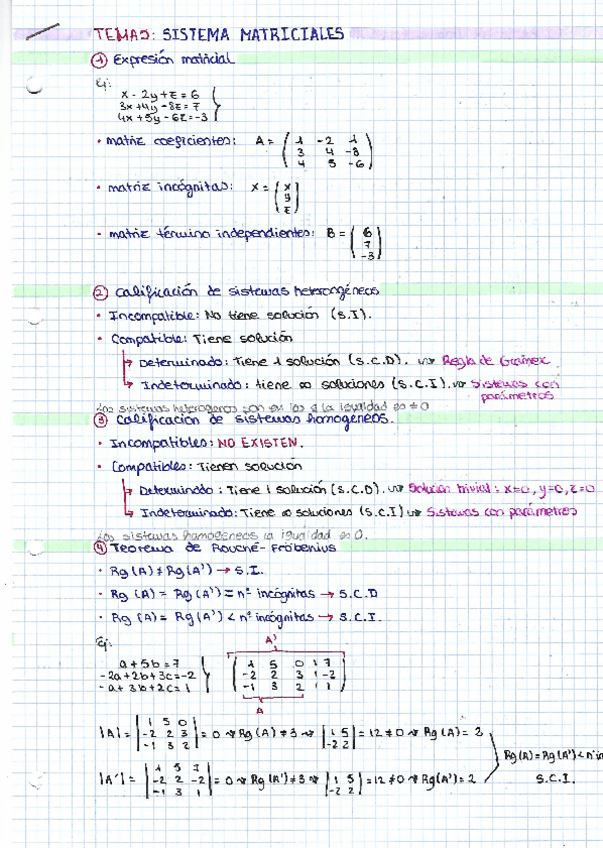 TEMA5: SISTEMA MATRICIALES
① Expresión matricial
Ej:
x - 2y + z = 6
3x + 4y - 8z = 7
4x + 5y - 6z = -3
· matriz coeficientes: A = ( 1 -2 1
3 4 -8
4 5 -6 )
· matriz incógnitas: X = ( x
y
z )
· matriz término independientes: B = ( 6
7
-3 )
② Calificación de sistemas heterogéneos
· Incompatible: No tiene solución (S.I).
· Compatible: Tiene solución
Determinado: Tiene 1 solución (S.C.D). Regla de Cramer
Indeterminado: tiene ∞ soluciones (S.C.I). Sistemas con
parámetros
los sistemas heterogeros son en los q la igualdad es ≠ 0
③ Calificación de sistemas homogéneos.
· Incompatibles: NO EXISTEN.
· Compatibles: Tienen solución
Determinado: Tiene 1 solución (S.C.D). Solución trivial: x=0, y=0, z=0
Indeterminado: Tiene ∞ soluciones (S.C.I) Sistemas con parámetros
Los sistemas homogeneos la igualdad es 0.
④ Teorema de Rouché-Fröbenius
· Rg (A) ≠ Rg (A') → S.I.
· Rg (A) = Rg (A') = nº incógnitas → S.C.D
· Rg (A) = Rg (A') < nº incógnitas → S.C.I.
Ej:
A'
a + 5b = 7
-2a + 2b + 3c = -2
-a + 3b + 2c = 1
( 1 5 0 | 7
-2 2 3 | -2
-1 3 2 | 1 )
A
|A| = | 1 5 0
-2 2 3
-1 3 2 | = 0 → Rg (A) ≠ 3 → | 1 5
-2 2 | = 12 ≠ 0 → Rg (A) = 2
|A'| = | 1 5 7
-2 2 -2
-1 3 1 | = 0 → Rg (A') ≠ 3 → | 1 5
-2 2 | = 12 ≠ 0 → Rg (A') = 2
Rg (A) = Rg (A') < nº in
S.C.I.